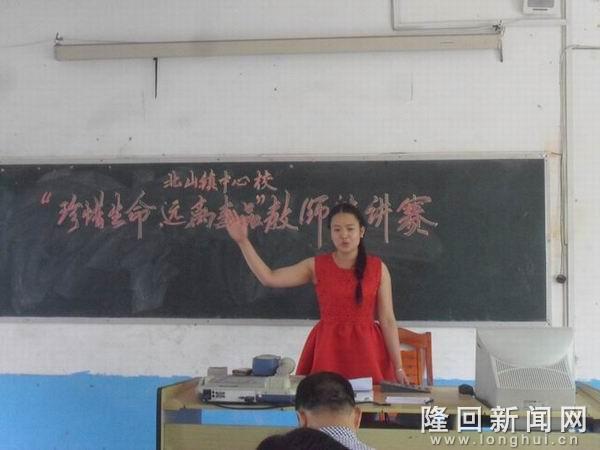 北山镇中心校
“珍惜生命 远离毒品”教师演讲赛
隆回新闻网
www.longhui.cn